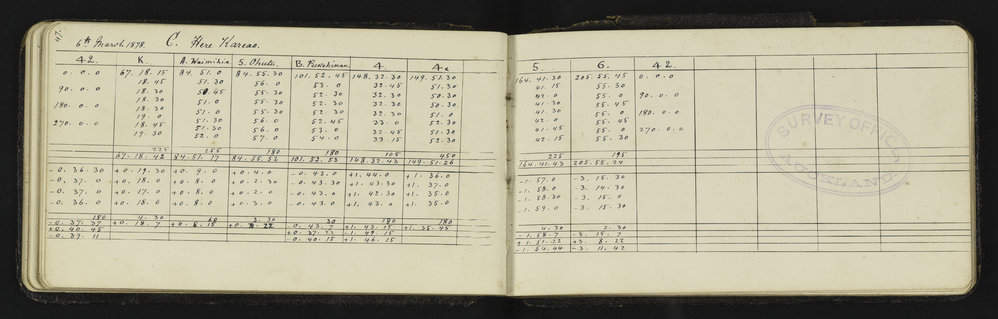 47.
6th March 1878. C. Here Kareao.
42. K. A. Waimihia S. Ohuti. B. Pukekinau. 4. 4a 5. 6. 42.
0.0.0 67.18.15 84.51.0 84.55.30 101.52.45 148.32.30 149.51.30 164.41.30 205.55.45 0.0.0
18.45 51.30 56.0 53.0 32.45 51.30 41.15 55.30
90.0.0 18.30 55.30 52.30 32.45 50.30 42.0 55.0 90.0.0
18.30 51.0 55.30 52.30 32.30 50.30 41.30 55.45
180.0.0 18.30 51.0 55.30 52.30 32.30 51.0 41.30 55.0 180.0.0
19.0 51.0 56.0 52.45 33.0 52.30 42.0 55.45
270.0.0 18.45 51.30 56.0 53.0 32.45 51.30 41.45 55.0 270.0.0
19.30 52.0 57.0 54.0 33.15 52.30 42.15 55.30
225 255 180 180 105 450 225 195
67.18.42 84.51.17 84.55.52 101.52.53 148.32.43 149.51.26 164.41.43 205.55.24
-0.36.30 +0.19.30 +0.9.0 +0.4.0 -0.43.0 +1.44.0 +1.36.0 -1.57.0 -3.15.30
-0.37.0 +0.18.0 +0.8.0 +0.2.30 -0.43.30 +1.43.30 +1.37.0 -1.58.0 -3.14.30
-0.37.0 +0.17.0 +0.8.0 +0.2.0 -0.43.0 +1.42.30 +1.35.0 -1.58.30 -3.15.0
-0.36.0 +0.18.0 +0.8.0 +0.3.0 -0.43.0 +1.43.0 +1.35.0 -1.59.0 -3.15.30
180 4.30 60 3.30 30 180 180 4.30 2.30
-0.37.37 +0.18.7 +0.8.15 -0.43.7 +1.43.15 +1.35.45 -1.58.7 -3.15.7
+0.40.45 +0.37.22 -1.49.15 +1.51.22 +3.8.22
-0.39.11 -0.40.15 +1.46.15 -1.54.44 -3.11.42
SURVEY OFFICE
AUCKLAND.